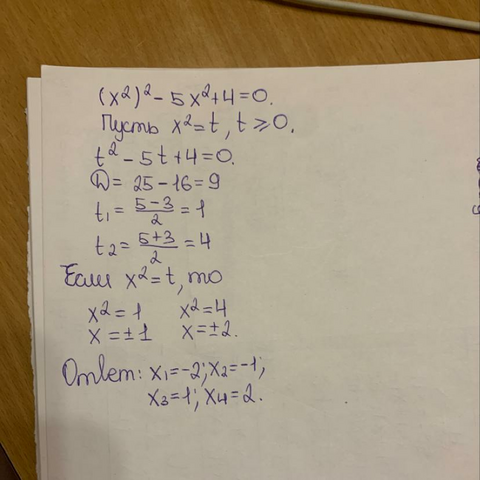 (x²)² - 5x² + 4 = 0.
Пусть x² = t, t ⩾ 0.
t² - 5t + 4 = 0.
D = 25 - 16 = 9
t₁ = (5-3)/2 = 1
t₂ = (5+3)/2 = 4
Если x² = t, то
x² = 1 x² = 4
x = ±1 x = ±2.
Ответ: x₁ = -2; x₂ = -1;
x₃ = 1; x₄ = 2.